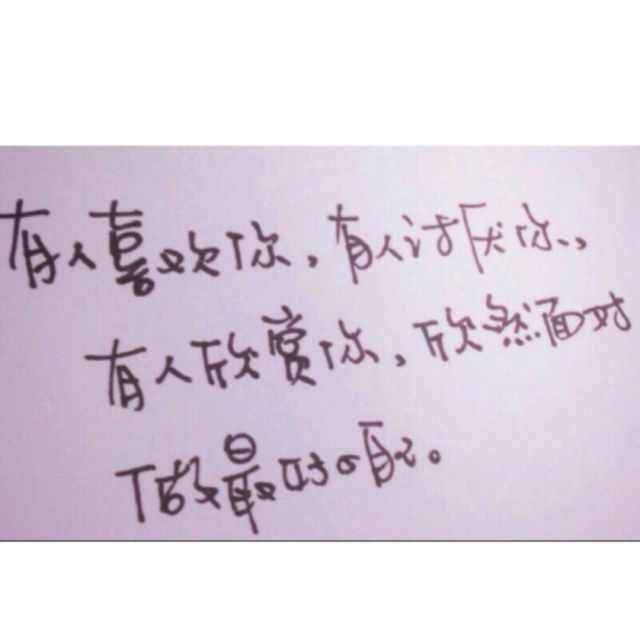 有人喜欢你，有人讨厌你，
有人欣赏你，欣然面对
做最好的自己。